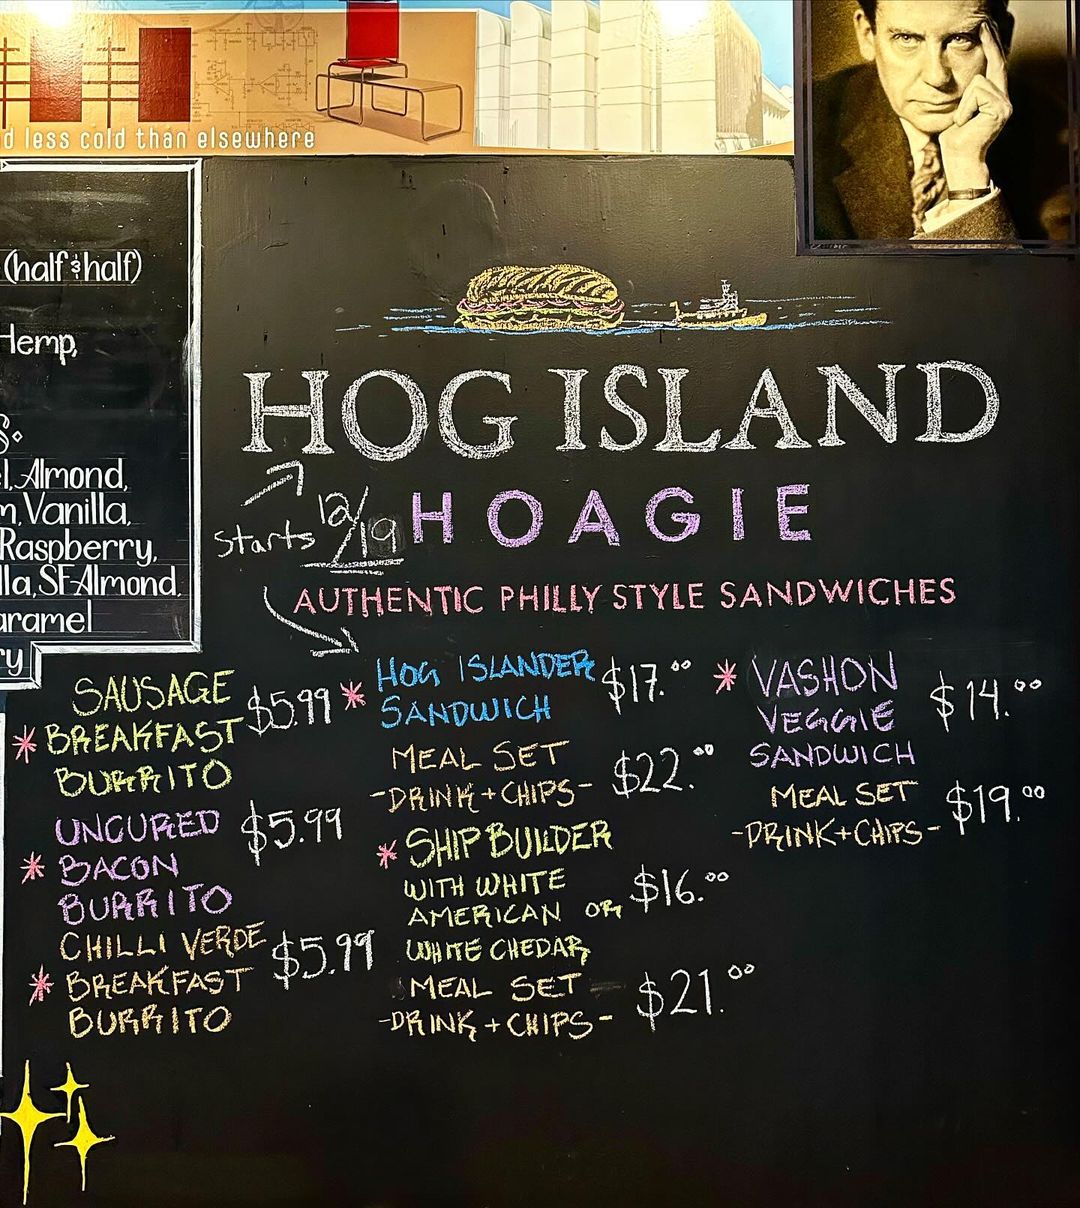 d less cold than elsewhere
(half & half)
Hemp,
s:
l, Almond,
m, Vanilla,
Raspberry,
lla, SF Almond,
aramel
ry
HOG ISLAND
HOAGIE
Starts 12/19
AUTHENTIC PHILLY STYLE SANDWICHES
SAUSAGE
* BREAKFAST $5.99
BURRITO
UNCURED $5.99
* BACON
BURRITO
CHILLI VERDE $5.99
* BREAKFAST
BURRITO
* HOG ISLANDER $17.00
SANDWICH
MEAL SET $22.00
-DRINK + CHIPS-
* SHIP BUILDER
WITH WHITE $16.00
AMERICAN OR
WHITE CHEDAR
MEAL SET $21.00
-DRINK + CHIPS-
* VASHON $14.00
VEGGIE
SANDWICH
MEAL SET $19.00
-DRINK + CHIPS-